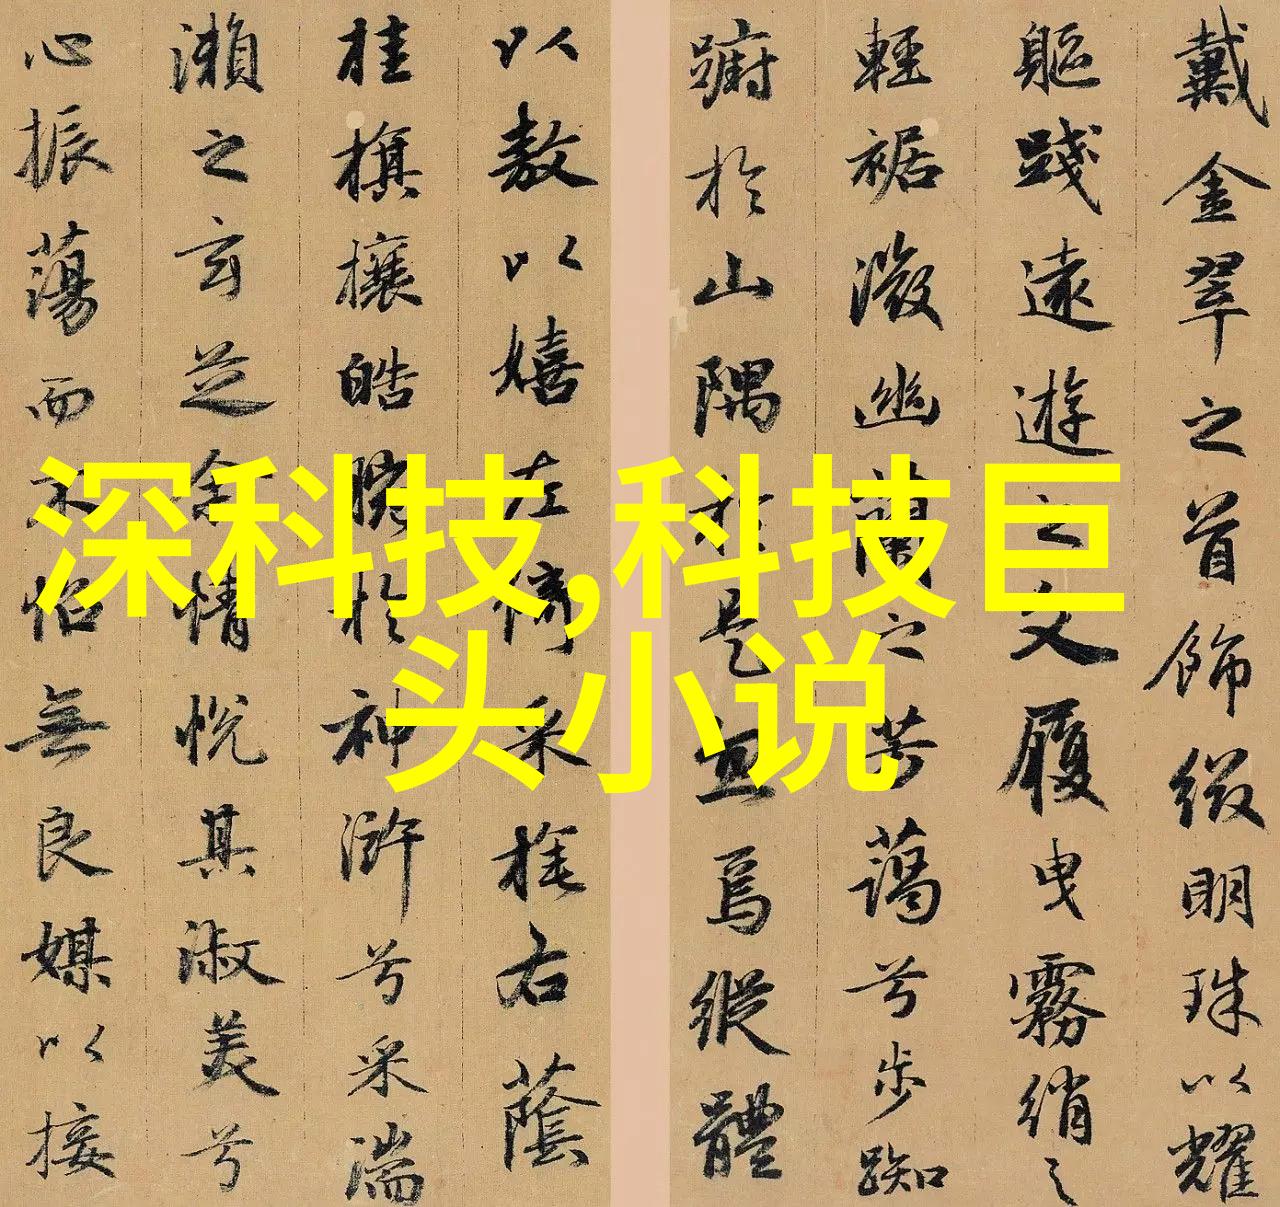 戴金翠之首飾綴明珠以耀
軀踐遠遊之文履曳霧綃之
輕裾微幽蘭之芳藹兮步踟
躕於山隅於是忽焉縱體
以敖以嬉左倚采旄右蔭
桂旗攘皓腕於神滸兮采湍
瀨之玄芝余情悅其淑美兮
心振蕩而不怡無良媒以接
深科技,科技巨
头小说